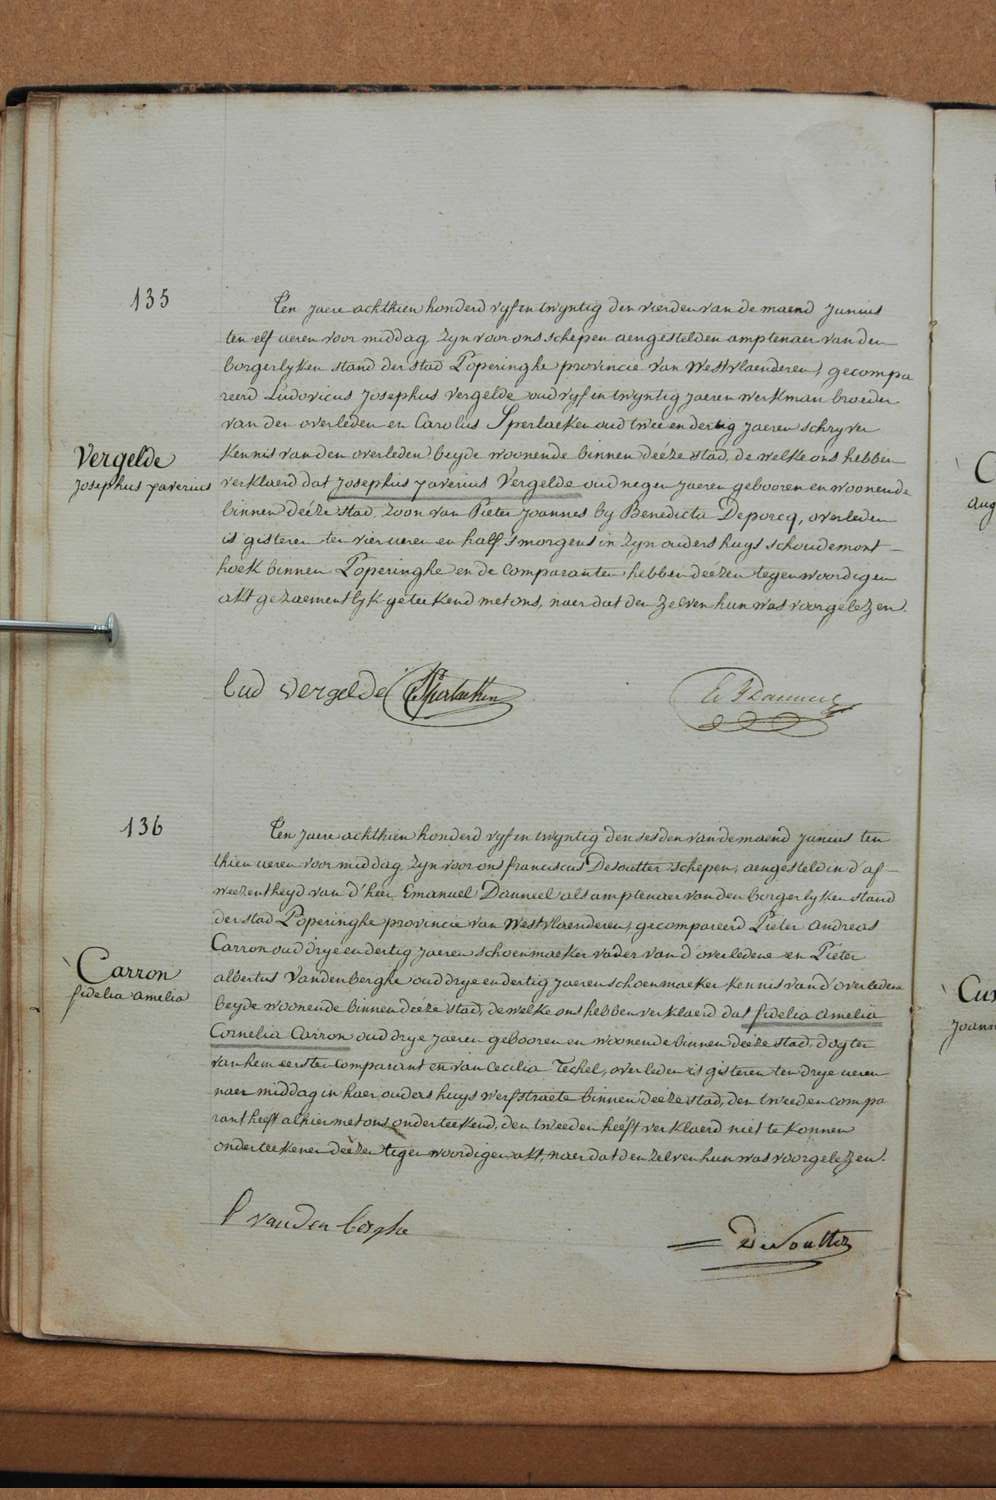 135
Ten jaere achthien honderd vyf en twyntig den vierden van de maend Junius
ten elf ueren voor middag zyn voor ons schepen aengestelden amptenaer van den
borgerlyken stand der stad Poperinghe provincie van Westvlaenderen, gecompa
reerd Ludovicus Josephus Vergelde oud vyf en twyntig jaeren werkman broeder
van den overleden en Carolus Sperlaeken oud twee en dertig jaeren schryver
Vergelde
Josephus xaverius
kennis van den overleden beyde woonende binnen deéze stad, de welke ons hebben
verklaerd dat Josephus xaverius Vergelde oud negen jaeren gebooren en woonende
binnen deéze stad, zoon van Pieter Joannes by Benedicta Deporcq, overleden
is gisteren ten vier ueren en half s'morgens in zyn ouders huys schoudemont-
hoek binnen Poperinghe en de comparanten hebben deézen tegenwoordigen
akt gezaementlyk geteekend met ons, naer dat den zelven hun was voorgelezen.
Lud Vergelde Sperlaeken
136
Ten jaere achthien honderd vyf en twyntig den sesden van de maend Junius ten
thien ueren voor middag zyn voor ons franciscus Desoutter schepen, aengesteld in d'af-
weezentheyd van d'heer Emanuel Danneel als amptenaer van den borgerlyken stand
der stad Poperinghe provincie van Westvlaenderen, gecompareerd Pieter Andreas
Carron oud drye en dertig jaeren schoenmaeker vader van d'overledene en Pieter
Carron
fidelia Amelia
albertus Vandenberghe oud drye en dertig jaeren schoenmaeker kennis van d'overledene
beyde woonende binnen deéze stad, de welke ons hebben verklaerd dat fidelia Amelia
Cornelia Carron oud drye jaeren gebooren en woonende binnen deéze stad, dogter
van hem eersten comparant en van Cecilia Techel, overleden is gisteren ten drye ueren
naer middag in haer ouders huys werfstraete binnen deeze stad, den tweeden compa
rant heeft alhier met ons onderteekend, den tweeden heéft verklaerd niet te konnen
onderteekenen deèzen tegenwoordigen akt, naer dat den zelven hun was voorgelezen.
P vanden berghe
DeSoutter
C
Aug
Cus
Joann